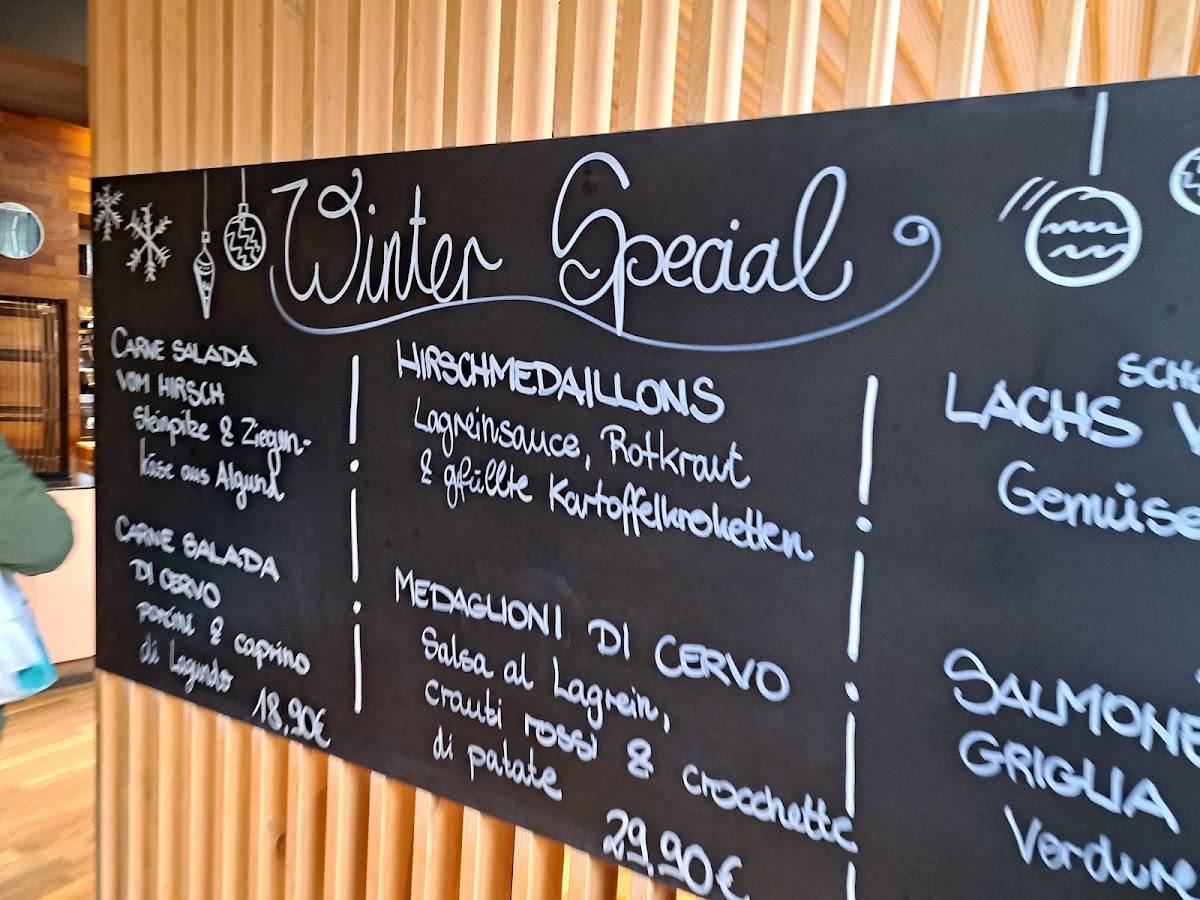 Winter Special
CARNE SALADA
VOM HIRSCH
Steinpilze & Ziegen-
käse aus Algund
CARNE SALADA
DI CERVO
porcini & caprino
di Lagundo
18,90€
HIRSCHMEDAILLONS
Lagreinsauce, Rotkraut
& gfüllte Kartoffelkroketten
MEDAGLIONI DI CERVO
Salsa al Lagrein,
crauti rossi & crocchette
di patate
29,90€
LACHS
Gemüse
SALMONE
GRIGLIA
Verdure